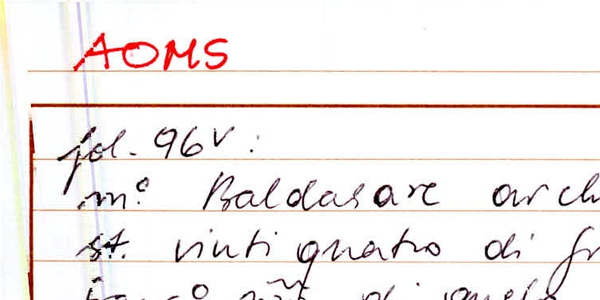 AOMS
fol. 96v:
m.º Baldasare arch
st. vinti quatro di fr
di